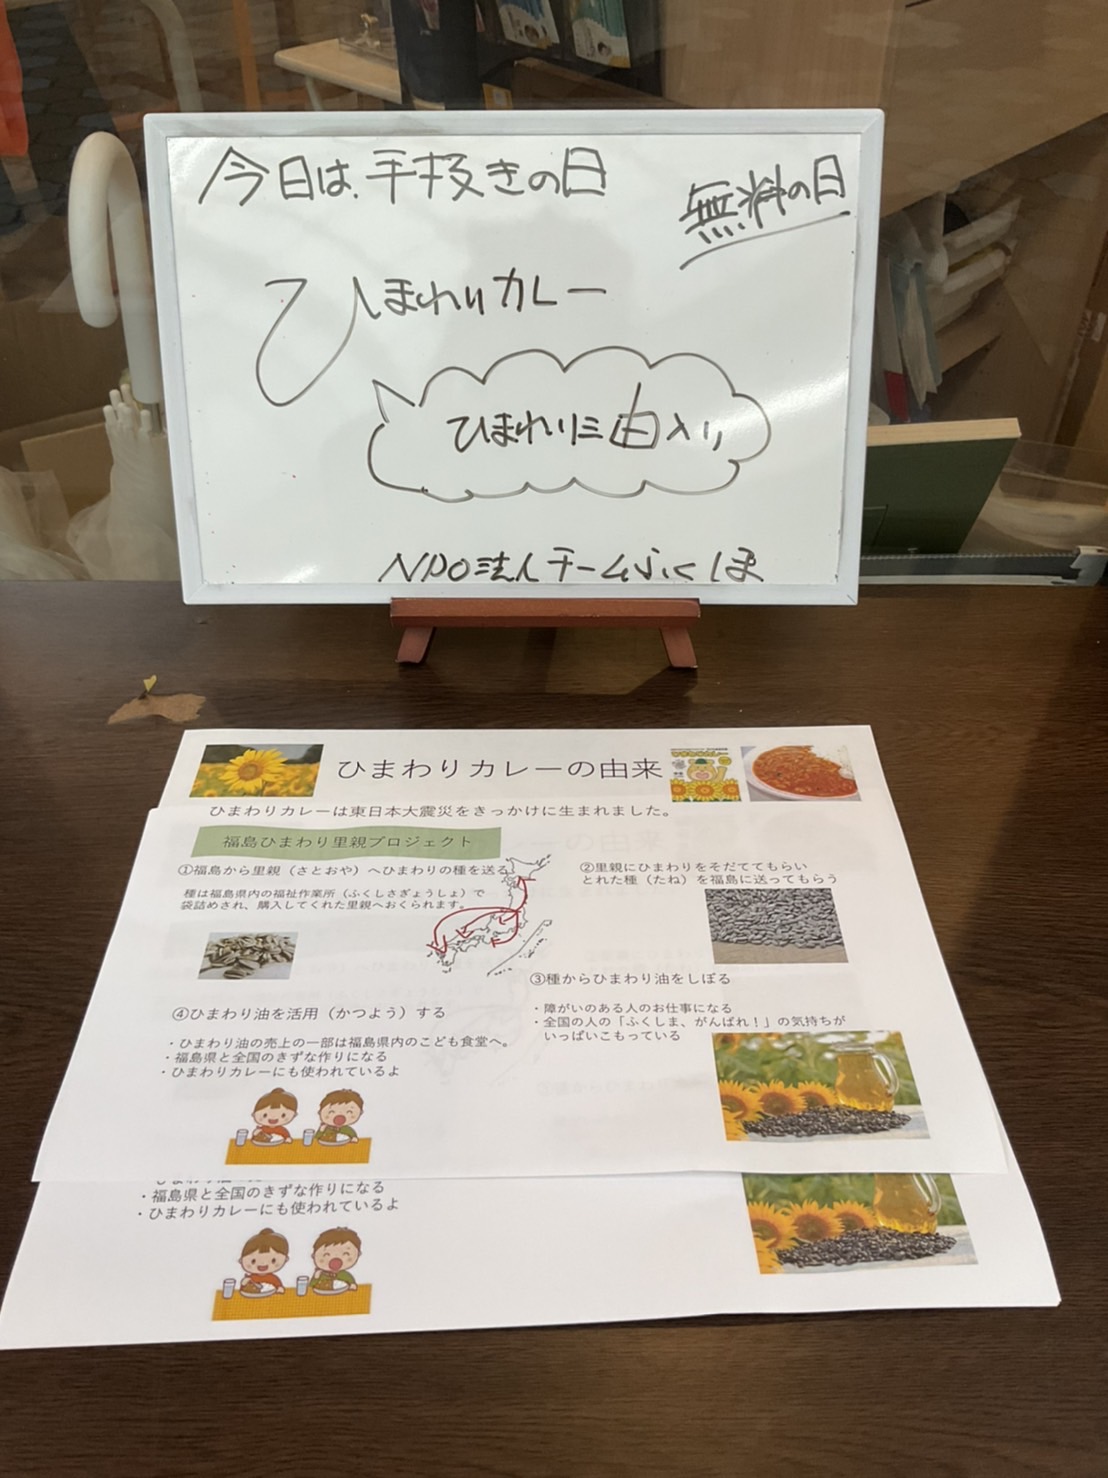 今日は、手抜きの日
無料の日
ひまわりカレー
ひまわり油入り
NPO法人チームふくしま
ひまわりカレーの由来
ひまわりカレーは東日本大震災をきっかけに生まれました。
福島ひまわり里親プロジェクト
①福島から里親（さとおや）へひまわりの種を送る
種は福島県内の福祉作業所（ふくしさぎょうしょ）で
袋詰めされ、購入してくれた里親へおくられます。
②里親にひまわりをそだててもらい
とれた種（たね）を福島に送ってもらう
③種からひまわり油をしぼる
・障がいのある人のお仕事になる
・全国の人の「ふくしま、がんばれ！」の気持ちが
いっぱいこもっている
④ひまわり油を活用（かつよう）する
・ひまわり油の売上の一部は福島県内のこども食堂へ。
・福島県と全国のきずな作りになる
・ひまわりカレーにも使われているよ
・福島県と全国のきずな作りになる
・ひまわりカレーにも使われているよ